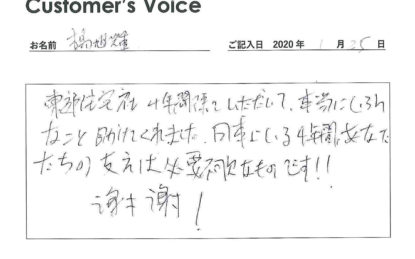 Customer's Voice
お名前 杨旭耀 ご記入日 2020年 1月 25日
東都住宅社 4年間渡ていただいて、本当にいろん
なこと助けてくれました。日本にいる4年間、あなた
たちの支えは必要不可欠なものです!!
谢谢!